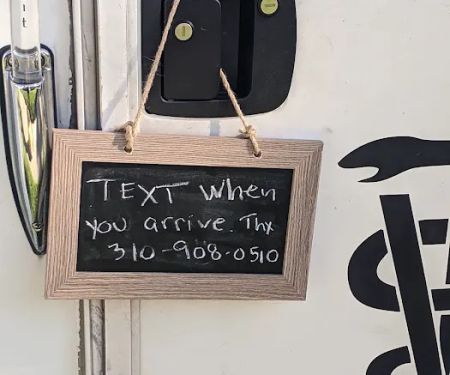 TEXT when
you arrive. Thx
310-908-0510